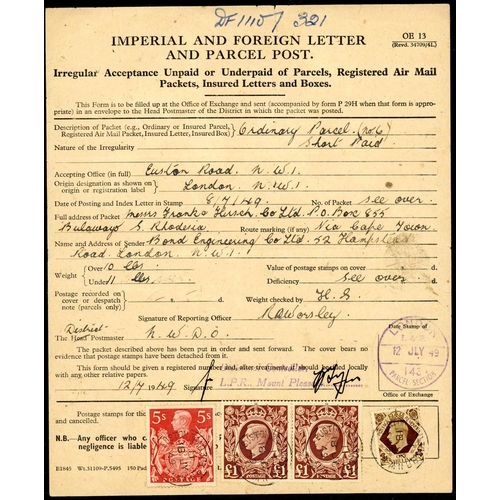 DF 1110/321
OE 13
(Revd. 34709/41.)
IMPERIAL AND FOREIGN LETTER
AND PARCEL POST.
Irregular Acceptance Unpaid or Underpaid of Parcels, Registered Air Mail
Packets, Insured Letters and Boxes.
This Form is to be filled up at the Office of Exchange and sent (accompanied by form P 29H when that form is appro-
priate) in an envelope to the Head Postmaster of the District in which the packet was posted.
Description of Packet (e.g., Ordinary or Insured Parcel, Registered Air Mail Packet, Insured Letter, Insured Box) Ordinary Parcel (no 6)
Nature of the Irregularity Short Paid
Accepting Office (in full) Euston Road. N.W.1.
Origin designation as shown on origin or registration label London. N.W.1.
Date of Posting and Index Letter in Stamp 8/7/49 No. of Packet see over
Full address of Packet Messrs Frank & Hirsch Co Ltd. P.O. Box 855
Bulawayo S. Rhodesia Route marking (if any) Via Cape Town
Name and Address of Sender Bond Engineering Co Ltd. 52 Hampstead
Road. London. N.W.1.
Weight Over 10 lbs Under 11 lbs
Value of postage stamps on cover
Deficiency see over
Postage recorded on cover or despatch note (parcels only)
Weight checked by H. S.
Signature of Reporting Officer Worsley
Date Stamp of
District
The Head Postmaster N.W.D.O.
The packet described above has been put in order and sent forward. The cover bears no
evidence that postage stamps have been detached from it.
LONDON
12 JLY 49
145
PARCEL SECTION
This form should be given a registered number and, after treatment, should be filed locally with
any other relative papers.
Controller,
12/7/1949 Signature
L.P.R., Mount Pleasant
Office of Exchange
Postage stamps for the
and cancelled.
N.B. — Any officer who
liable
E1845 Wt.31109-P.5495 150 Pad
5s 5s
POSTAGE
£1 POSTAGE £1
£1 POSTAGE £1